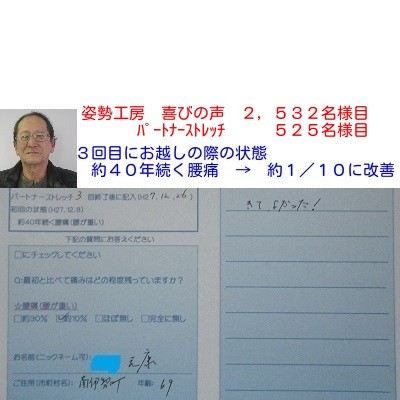 姿勢工房　喜びの声　２，５３２名様目
ﾊﾟｰﾄﾅｰｽﾄﾚｯﾁ　　　５２５名様目
３回目にお越しの際の状態
約４０年続く腰痛　→　約１／１０に改善
パートナーストレッチ 3 回終了後に記入(H27.12.26)
初回の状態(H27.12.8)
約40年続く腰痛(腰が重い)
下記の質問にお答えください
□にチェックしてください
Q:最初と比べて痛みはどの程度残っていますか?
☆腰痛(腰が重い)
□約30% ☑約10% □ほぼ無し □完全に無し
お名前(ニックネーム可)
ご住所(市町村名): 南伊勢町 年齢: 69
きてよかった!